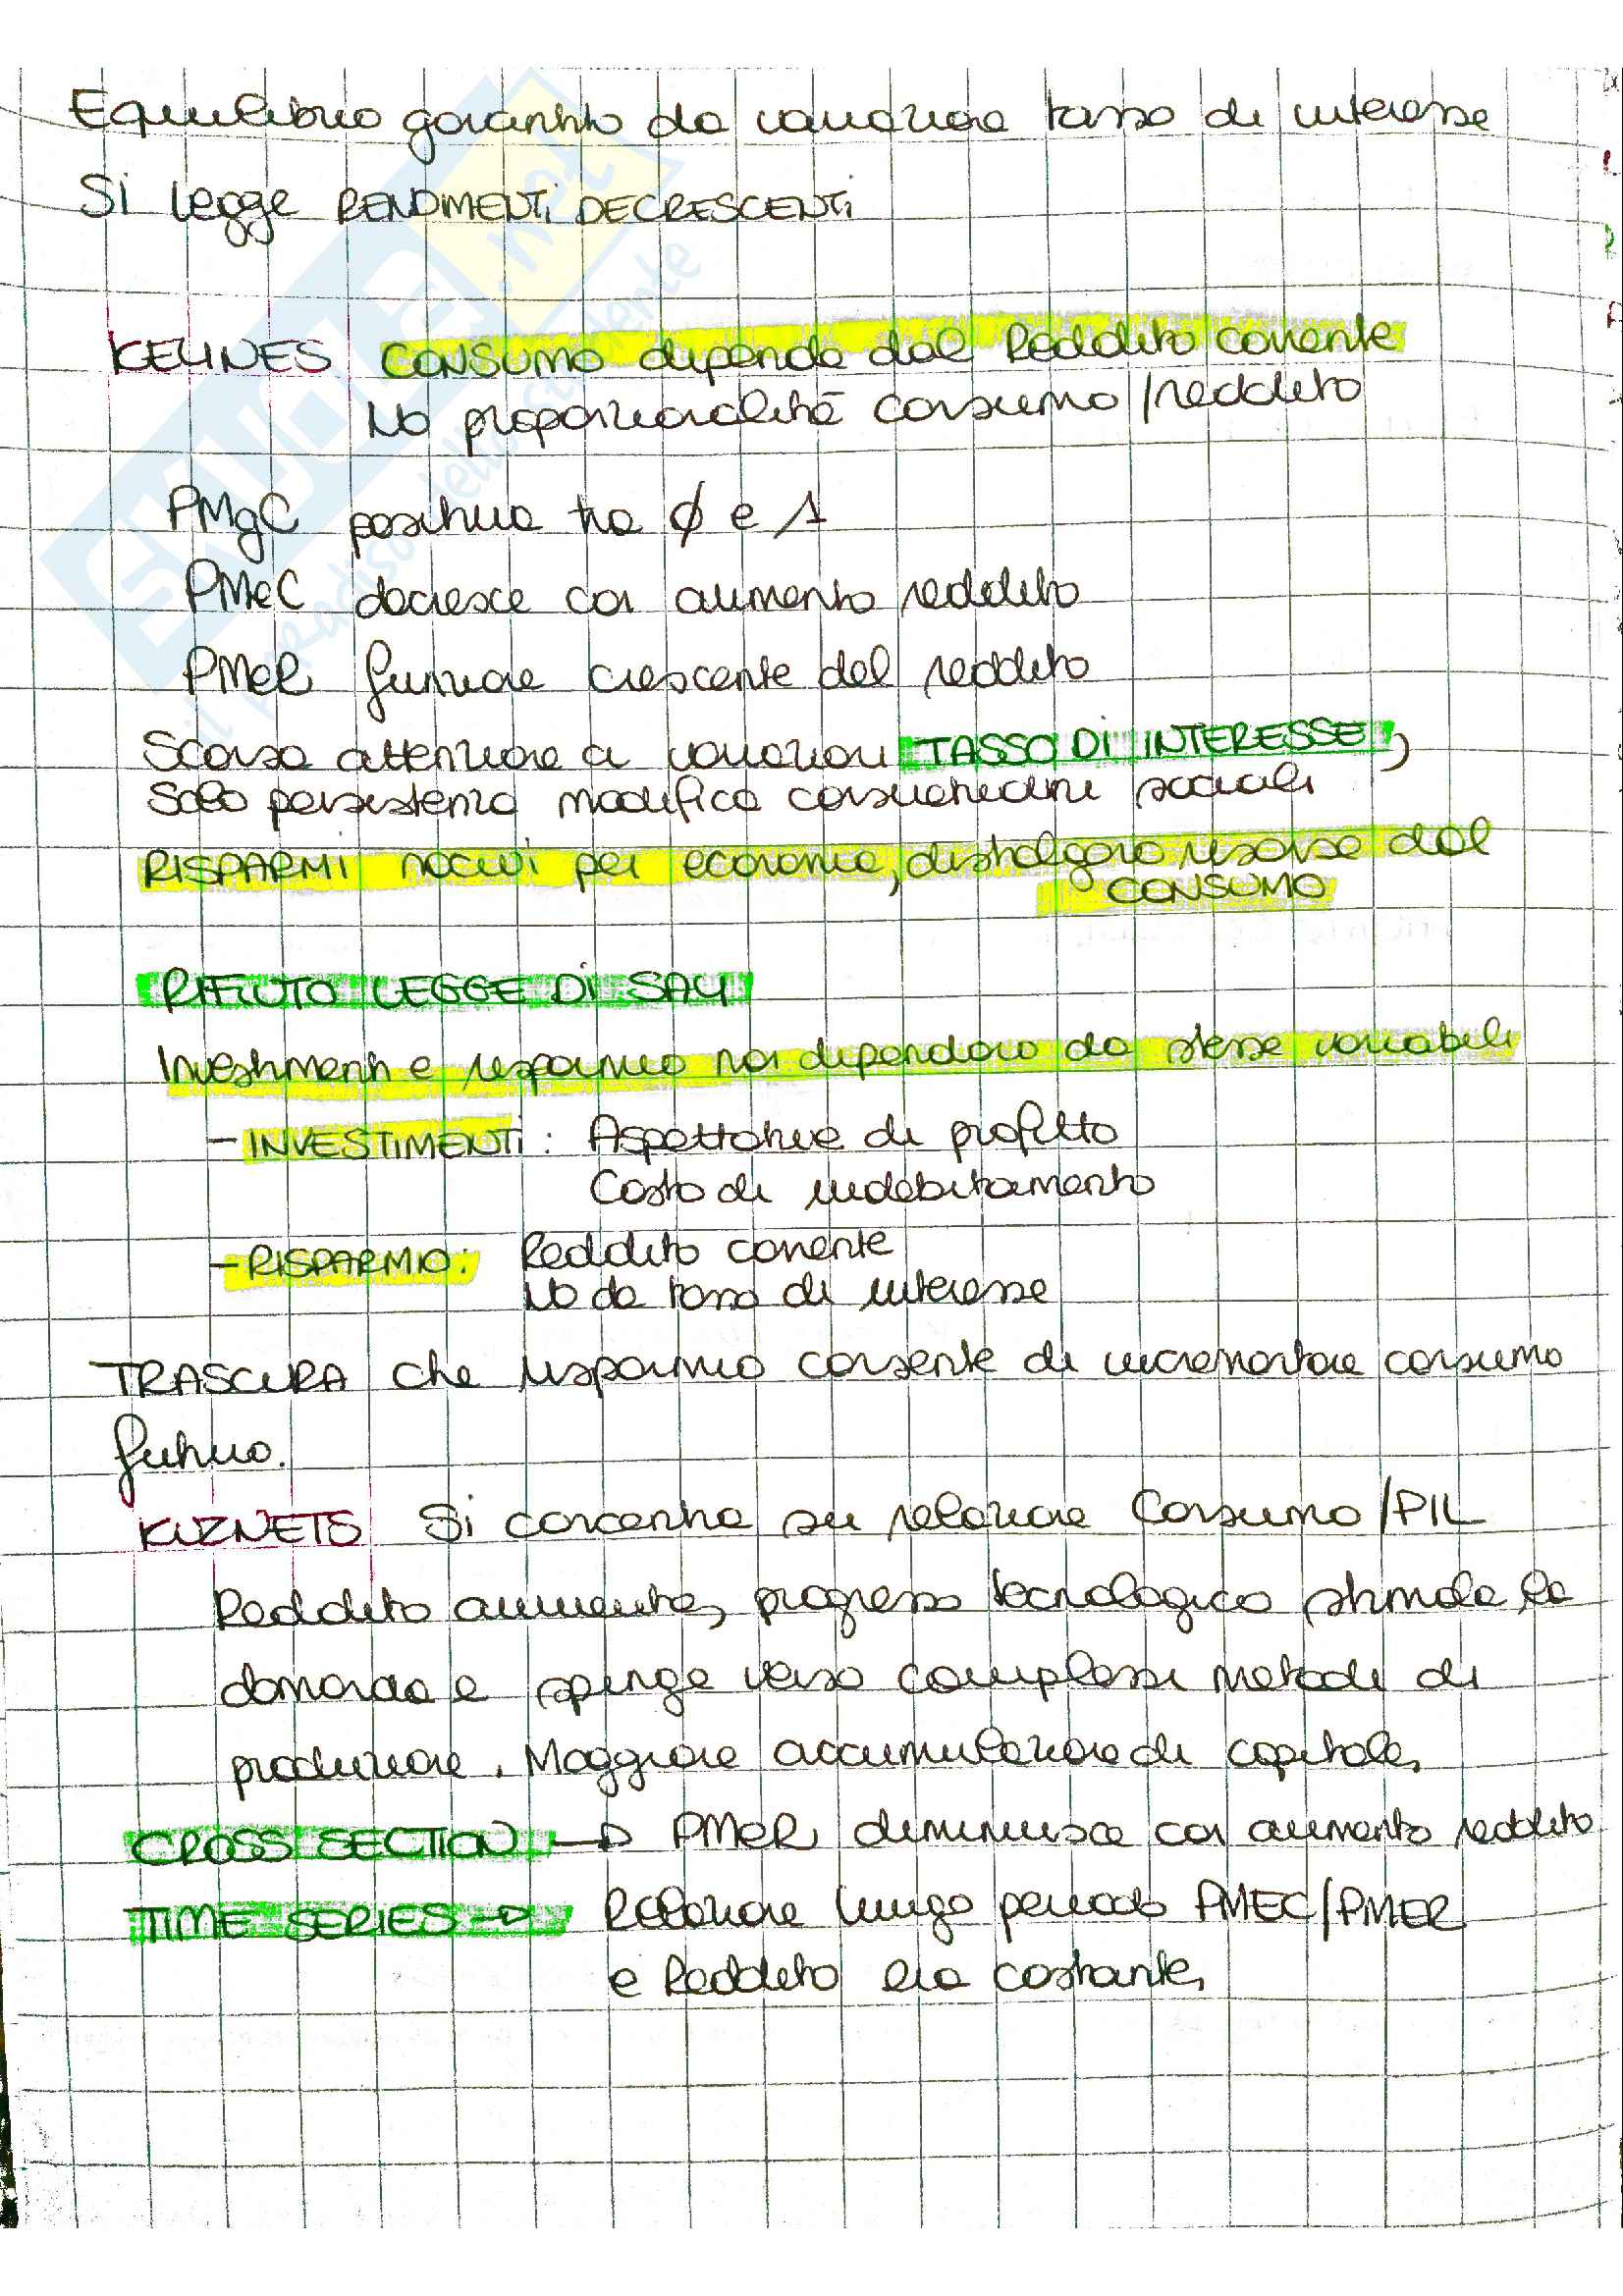 Equilibrio garantito da variazione tasso di interesse
Si legge RENDIMENTI DECRESCENTI
KEYNES CONSUMO dipende dal Reddito corrente
No proporzionalità consumo/reddito
PMgC positiva tra 0 e 1
PMeC decresce con aumento reddito
PMeR funzione crescente del reddito
Scarsa attenzione a variazioni TASSO DI INTERESSE,
Solo persistenza modifica consuetudini sociali
RISPARMI nocivi per economia, distolgono risorse dal
CONSUMO
RIFIUTO LEGGE DI SAY
Investimenti e risparmio non dipendono da stesse variabili
- INVESTIMENTI: Aspettative di profitto
Costo di indebitamento
- RISPARMIO: Reddito corrente
No da tasso di interesse
TRASCURA che risparmio consente di incrementare consumo
futuro.
KUZNETS Si concentra su relazione Consumo/PIL
Reddito aumenta, progresso tecnologico stimola la
domanda e spinge verso complessi metodi di
produzione. Maggiore accumulazione di capitale.
CROSS SECTION → PMeR diminuisce con aumento reddito
TIME SERIES → Relazione lungo periodo PMEC/PMER
e Reddito era costante.
SKUOLA.net
il paradiso dello studente